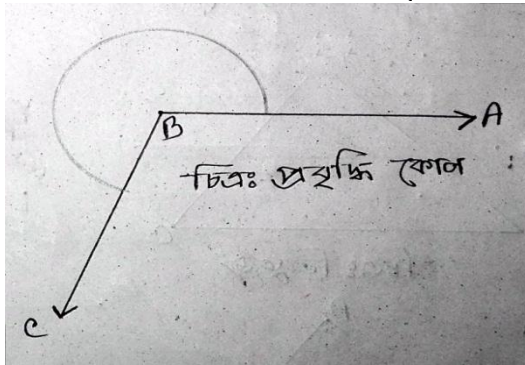 A
B
চিত্রঃ প্রবৃদ্ধি কোণ
C